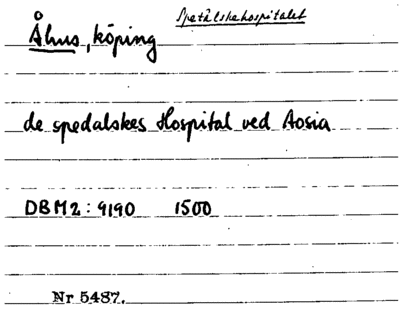 Spetälskehospitalet
Åhus, köping
de spedalskes Hospital ved Aosia
DBM2: 9190 1500
Nr 5487.